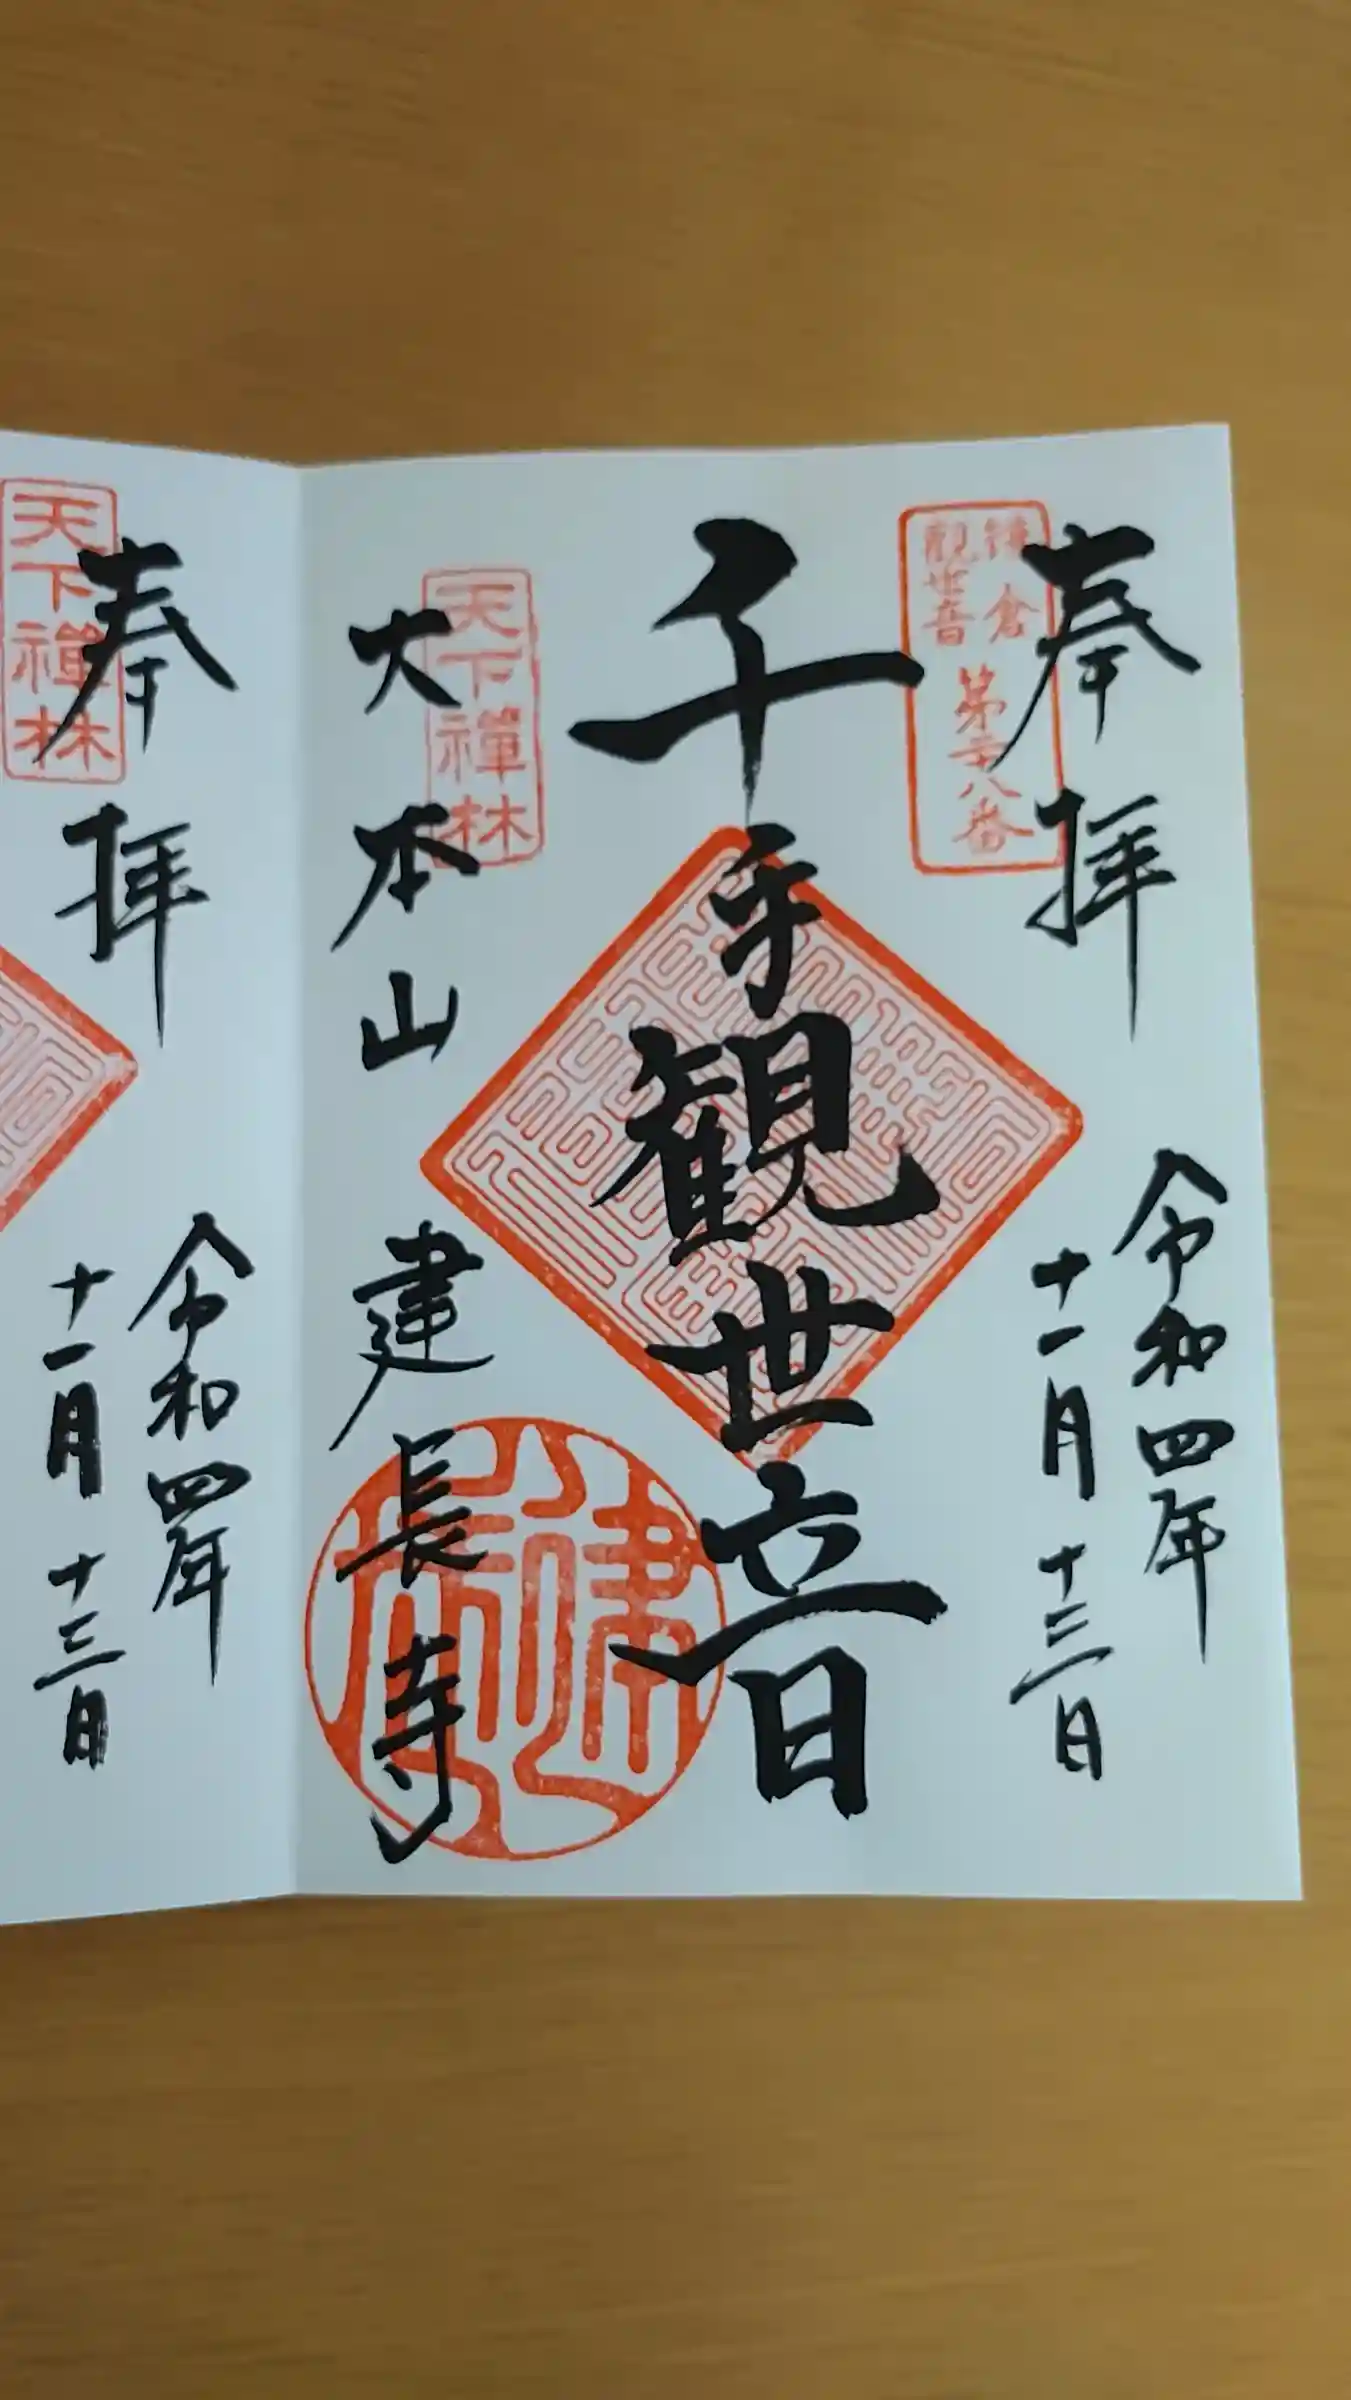 奉拝
令和四年
十一月十三日
鎌倉
観世音
第二十八番
千手観世音
天下禅林
大本山
建長寺
奉拝
令和四年
十一月十三日
天下禅林